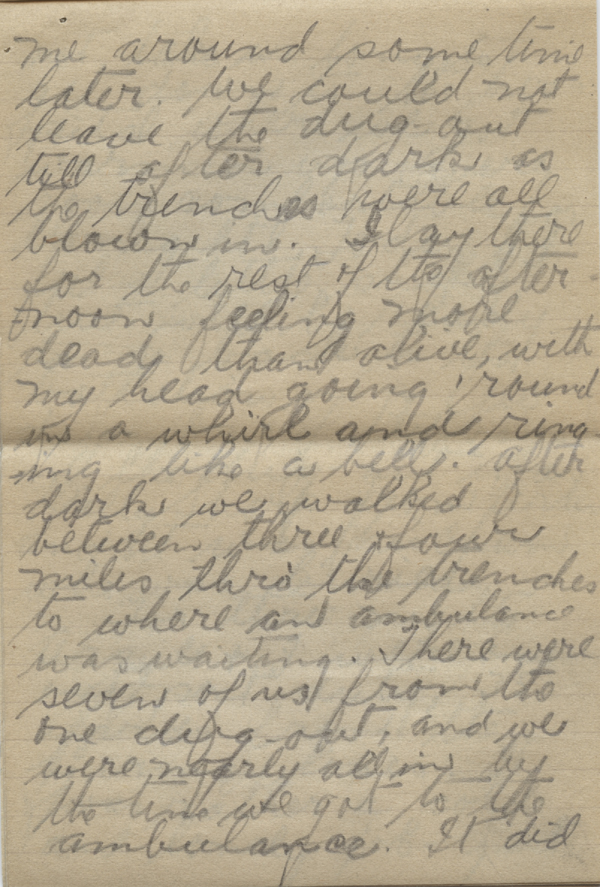 me around some time
later. We could not
leave the dug-out
till after dark as
the trenches were all
blown in. I lay there
for the rest of the after-
noon feeling more
dead than alive, with
my head going 'round
in a whirl and ring
ing like a bell. After
dark we walked
between three & four
miles thro' the trenches
to where an ambulance
was waiting. There were
seven of us from the
one dug-out, and we
were nearly all in by
the time we got to the
ambulance. It did